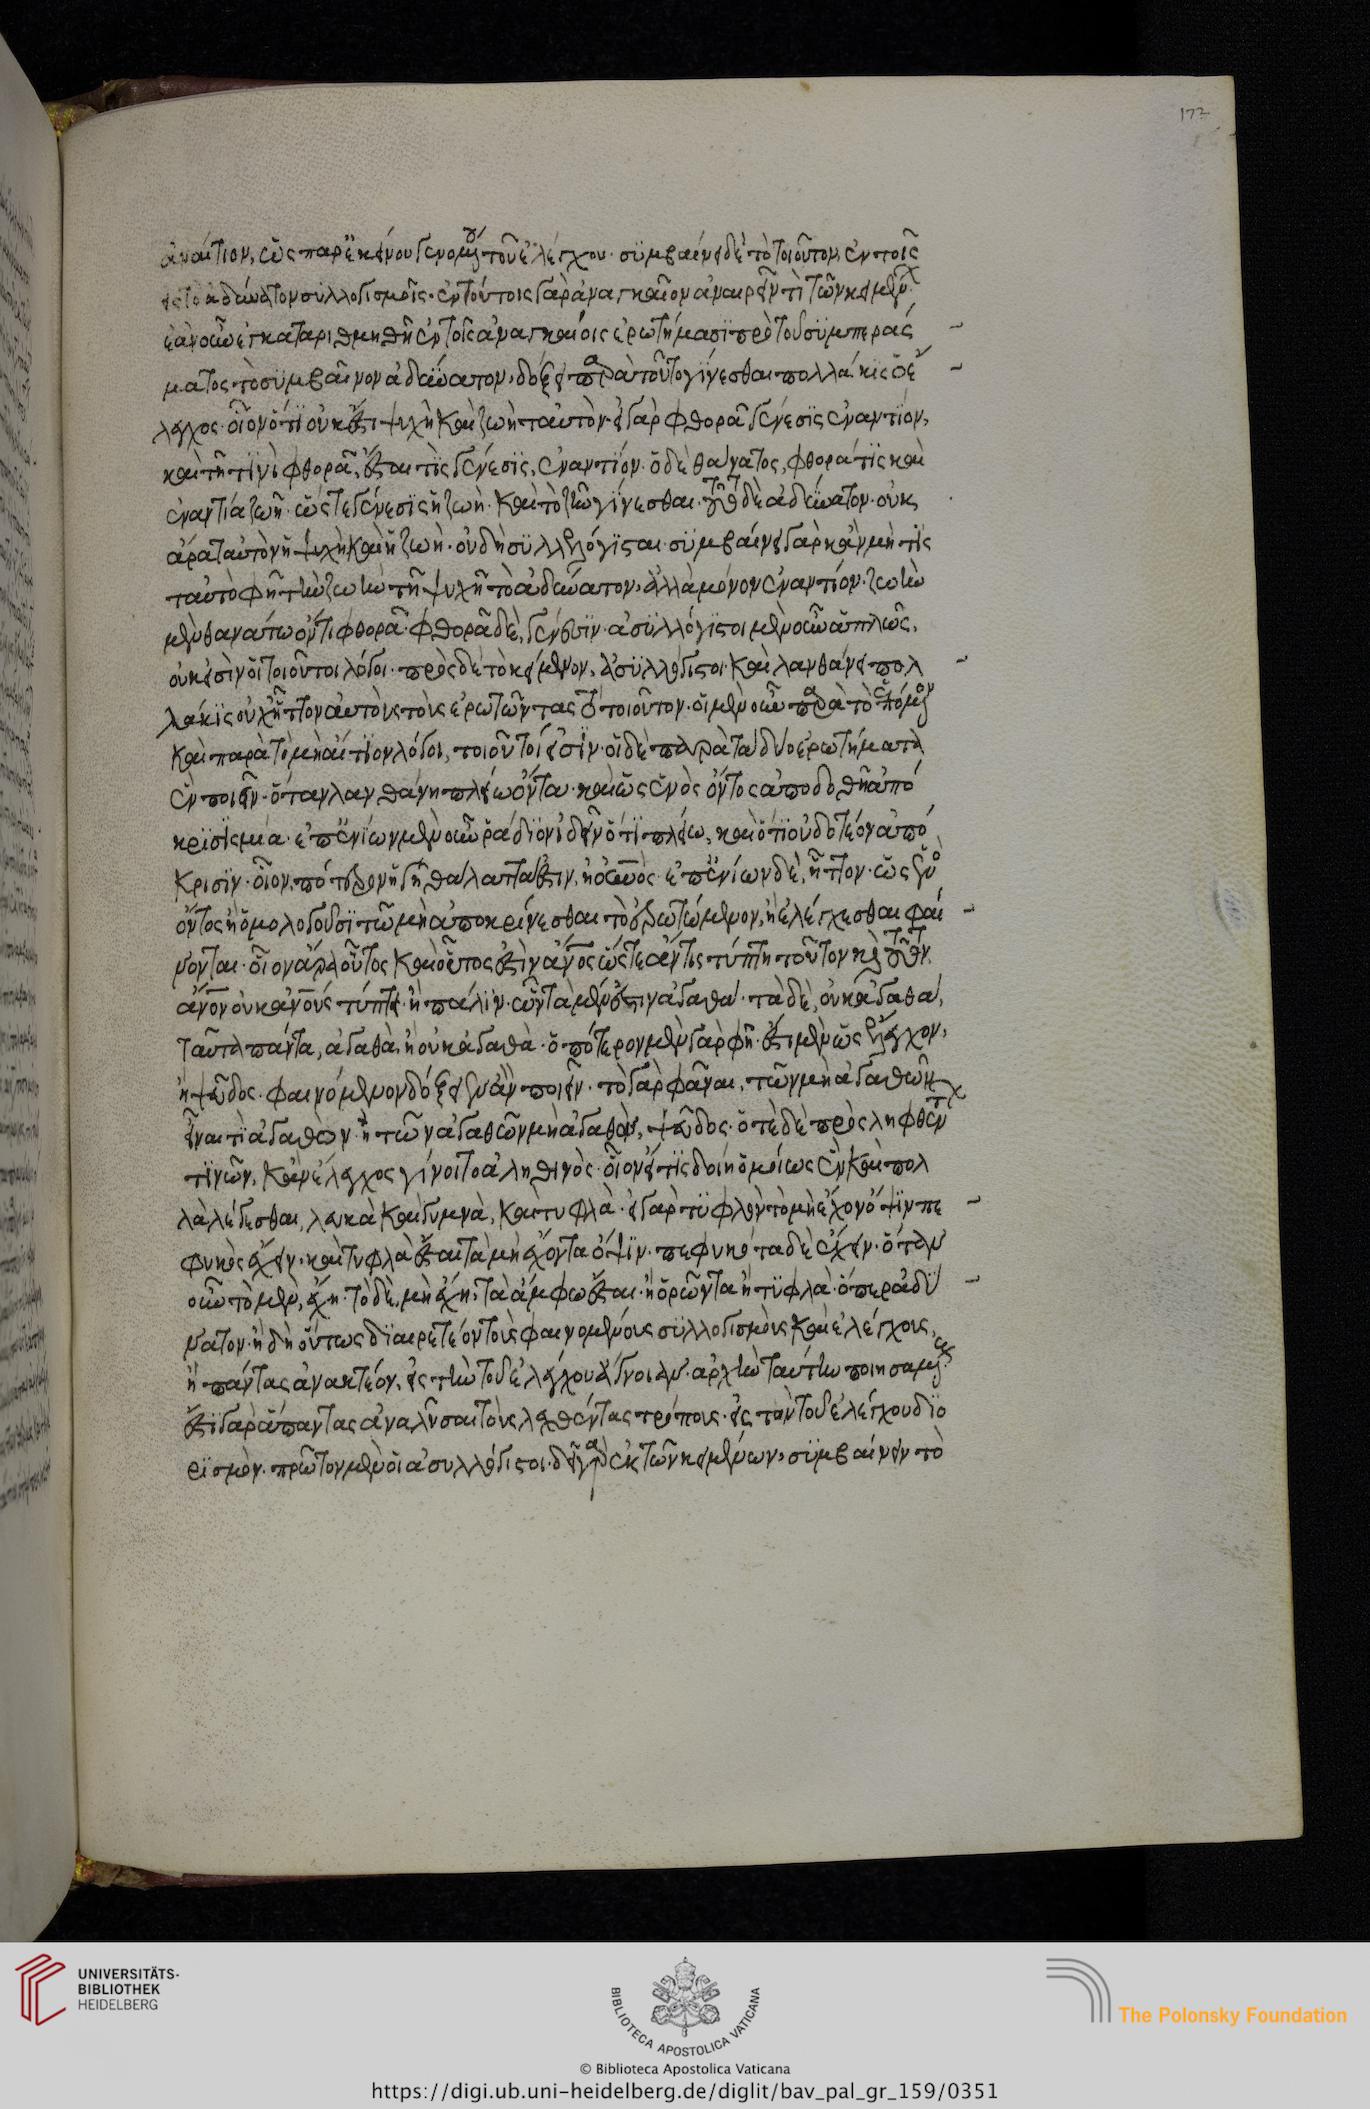 ἀναίτιον, ὡς παρ' ἐκείνου γενομένου τοῦ ἐλέγχου· συμβαίνει δὲ τὸ τοιοῦτον, ἐν τοῖς
εἰς τὸ ἀδύνατον συλλογισμοῖς· ἐν τούτοις γὰρ ἀναγκαῖον ἀναιρεῖν τὶ τῶν κειμένων
ἐὰν οὖν ἐγκαταριθμηθῆ ἐν τοῖς ἀναγκαίοις ἐρωτήμασι πρὸ τοῦ συμπεράσ
ματος τὸ συμβαῖνον ἀδύνατον, δόξει παρὰ τοῦτο γίνεσθαι πολλάκις ὁ ἔ
λεγχος· οἷον ὅτι οὐκ ἔστι ψυχὴ καὶ ζωὴ ταυτόν· εἰ γὰρ φθορᾶ γένεσις ἐναντίον,
καὶ τῆ τινὶ φθορᾶ, ἔσται τὶς γένεσις, ἐναντίον· ὁ δὲ θάνατος, φθορά τις καὶ
ἐναντία ζωῆ· ὥστε γένεσις ἡ ζωή· καὶ τὸ ζῆν γίνεσθαι· τοῦτο δὲ ἀδύνατον· οὐκ
ἄρα ταυτὸν ἡ ψυχὴ καὶ ἡ ζωή· οὐ δὴ συλλελόγισται· συμβαίνει γὰρ κἂν μὴ τὶς
ταυτὸ φῆ τὴν ζωὴν τῆ ψυχῆ τὸ ἀδύνατον, ἀλλὰ μόνον ἐναντίον· ζωὴν
μὲν θανάτω ὄντι φθορᾶ· φθορᾶ δὲ, γένεσιν· ἀσυλλόγιστοι μὲν οὖν ἁπλῶς,
οὐκ εἰσὶν οἱ τοιοῦτοι λόγοι· πρὸς δὲ τὸ κείμενον, ἀσυλλόγιστοι· καὶ λανθάνει πολ
λάκις οὐχ ἧττον αὐτοὺς τοὺς ἐρωτῶντας τὸ τοιοῦτον· οἱ μὲν οὖν παρὰ τὸ ἑπόμενον
καὶ παρὰ τὸ μὴ αἴτιον λόγοι, τοιοῦτοί εἰσιν· οἱ δὲ παρὰ τὰ δύο ἐρωτήματα
ἓν ποιεῖν· ὅταν λανθάνη πλείω ὄντα· καὶ ὡς ἑνὸς ὄντος ἀποδοθῆ ἀπό
κρισις μία· ἐπ' ἐνίων μὲν οὖν ῥάδιον ἰδεῖν ὅτι πλείω, καὶ ὅτι οὐ δοτέον ἀπό
κρισιν· οἷον, πότερον ἡ γῆ θάλαττά ἐστιν, ἢ ὁ οὐρανός· ἐπ' ἐνίων δὲ, ἧττον· ὡς ἑνὸς
ὄντος ἢ ὁμολογοῦσι τῶ μὴ ἀποκρίνεσθαι τὸ ἐρωτώμενον, ἢ ἐλέγχεσθαι φαί
νονται· οἷον ἆρα οὗτος καὶ οὗτος ἐστὶν ἄνος ὥστε ἄν τις τύπτη τοῦτον καὶ τοῦτον
ἄνον οὐκ ἄνους τύπτει· ἢ πάλιν· ὧν τὰ μέν ἐστιν ἀγαθά· τὰ δὲ, οὐκ ἀγαθά,
ταῦτα πάντα, ἀγαθὰ, ἢ οὐκ ἀγαθά· ὁπότερον μὲν γὰρ φῆ· ἔστι μὲν ὡς ἔλεγχον,
ἢ ψεῦδος· φαινόμενον δόξειεν ἂν ποιεῖν· τὸ γὰρ φάναι, τῶν μὴ ἀγαθῶν
εἶναι τὶ ἀγαθὸν· ἢ τῶν ἀγαθῶν μὴ ἀγαθὸν, ψεῦδος· ὁτὲ δὲ προσληφθέντων
τινῶν, κἂν ἔλεγχος γίνοιτο ἀληθινός· οἷον εἴ τις δοίη ὁμοίως ἓν καὶ πολ
λὰ λέγεσθαι, λευκὰ καὶ γυμνὰ, καὶ τυφλὰ· εἰ γὰρ τυφλὸν τὸ μὴ ἔχον ὄψιν πε
φυκὸς ἔχειν· καὶ τυφλὰ ἔσται τὰ μὴ ἔχοντα ὄψιν· πεφυκότα δὲ ἔχειν· ὅταν
οὖν τὸ μὲν, ἔχη· τὸ δὲ, μὴ ἔχη, τὰ ἄμφω ἔσται· ἢ ὁρῶντα ἢ τυφλὰ· ὅπερ ἀδύ
νατον· ἢ δὴ οὕτως διαιρετέον τοὺς φαινομένους συλλογισμοὺς καὶ ἐλέγχους,
ἢ πάντας ἀνακτέον, εἰς τὴν τοῦ ἐλέγχου ἄγνοιαν· ἀρχὴν ταύτην ποιησαμένους
ἔστι γὰρ ἅπαντας ἀναλῦσαι τοὺς λεχθέντας τρόπους· εἰς τὸν τοῦ ἐλέγχου διο
ρισμόν· πρῶτον μὲν οἱ ἀσυλλόγιστοι· δεῖ γὰρ ἐκ τῶν κειμένων, συμβαίνειν τὸ
177
UNIVERSITÄTS-
BIBLIOTHEK
HEIDELBERG
BIBLIOTECA APOSTOLICA VATICANA
The Polonsky Foundation
© Biblioteca Apostolica Vaticana
https://digi.ub.uni-heidelberg.de/diglit/bav_pal_gr_159/0351